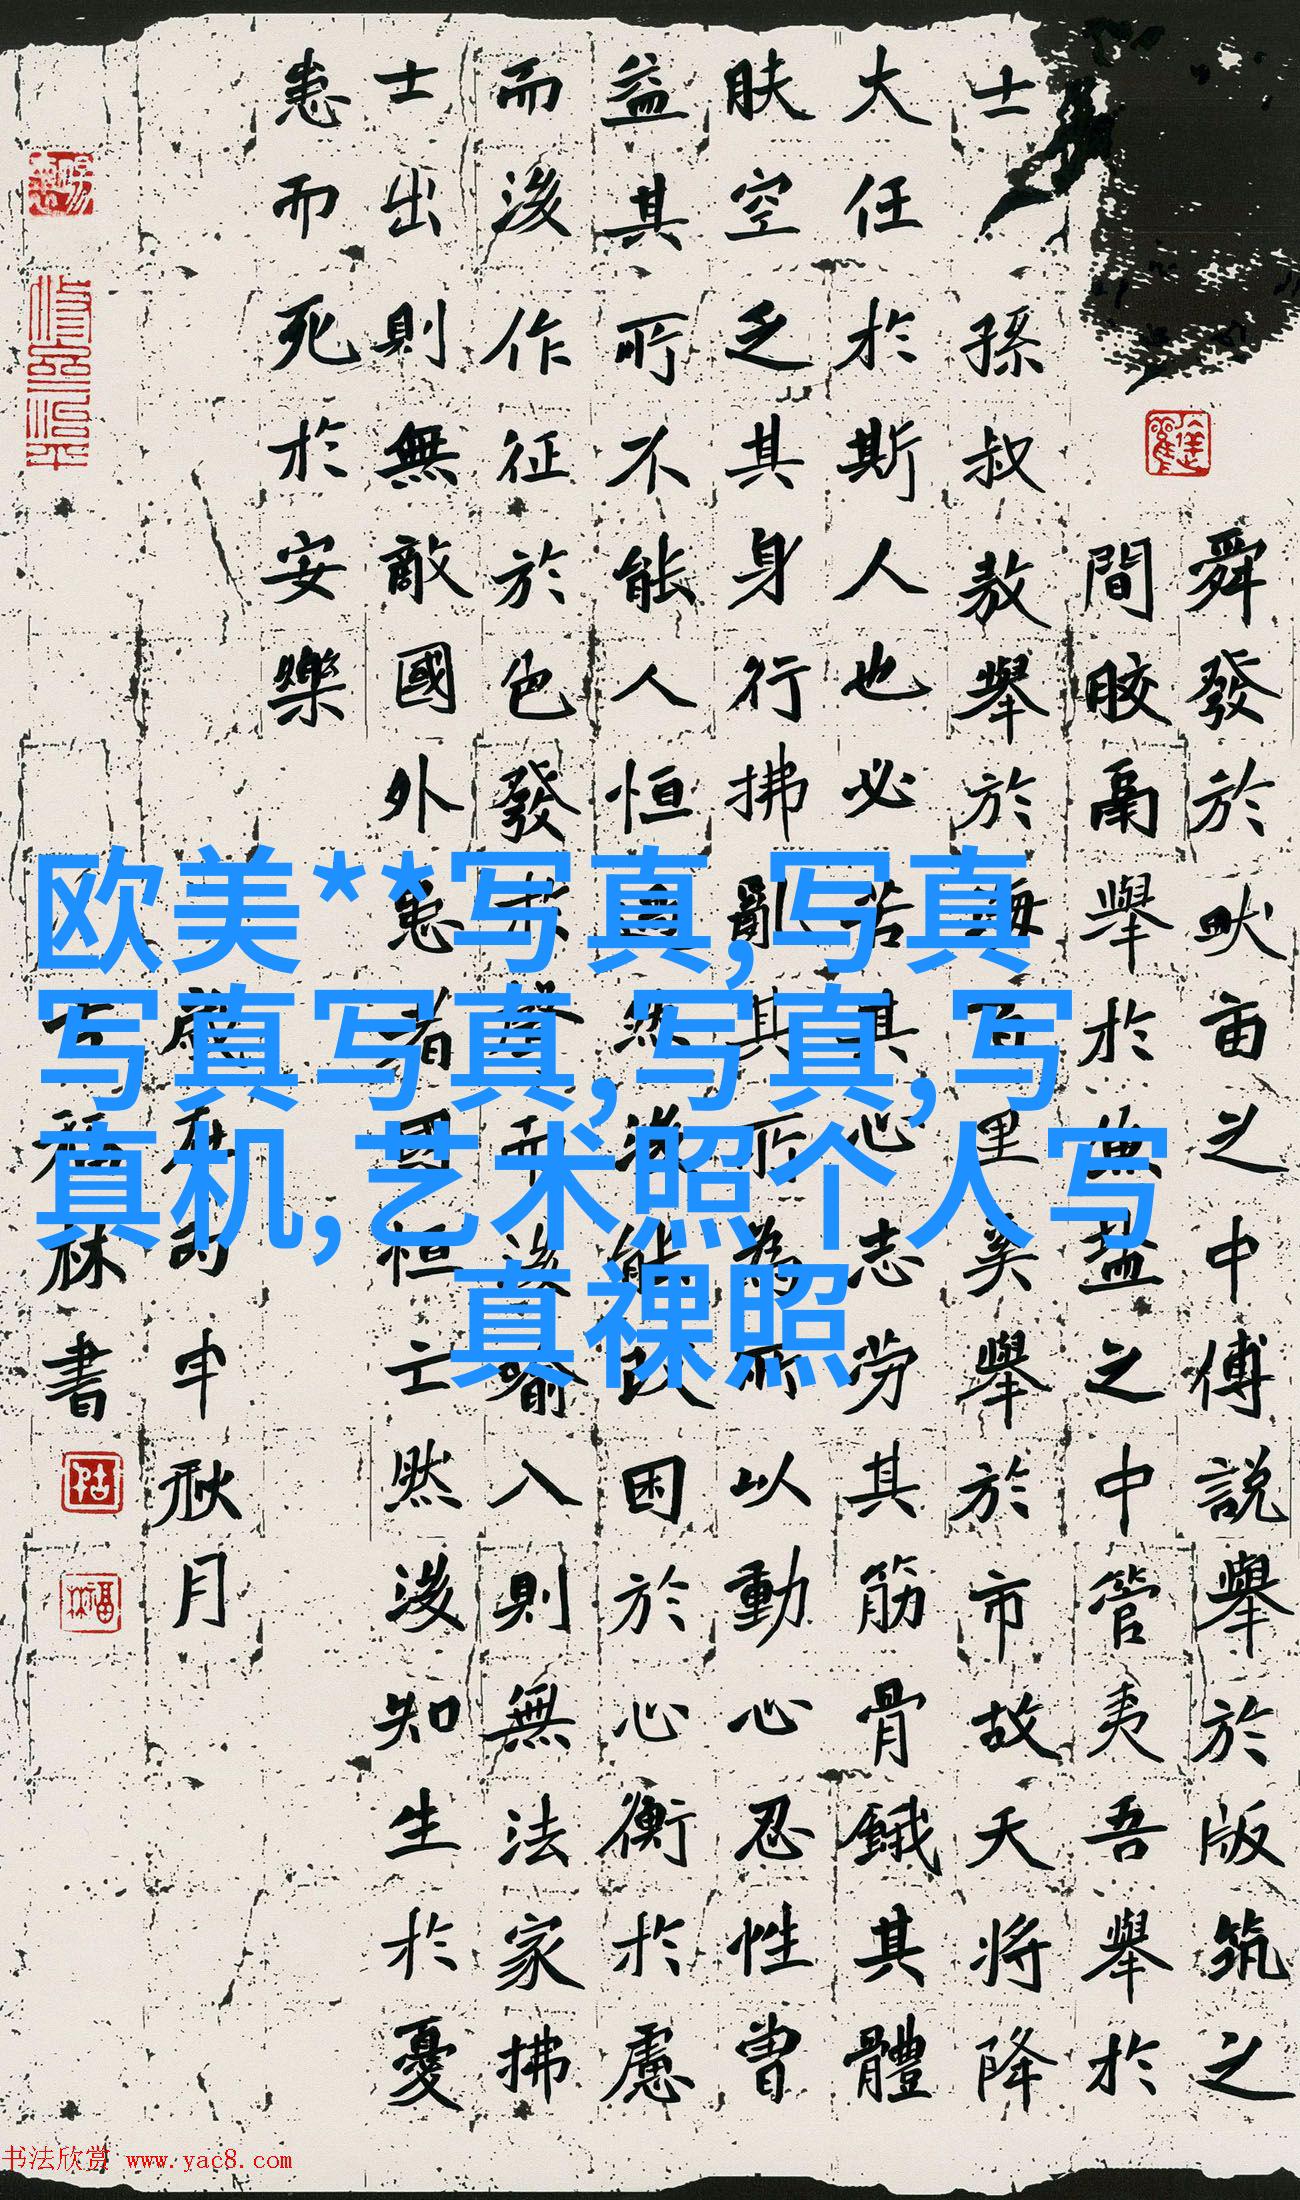 舜發於畎亩之中傅説舉於版筑之
間膠鬲舉於魚盐之中管夷吾舉於
士孫叔敖舉於海百里奚舉於市故天将降
大任於斯人也必苦其心志劳其筋骨餓其體
肤空乏其身行拂亂其所為所以動心忍性曾
益其所不能人恒過然後能改困於心衡於慮
而後作征於色發於聲而後喻入則無法家拂
士出則無敵國外患者國恒亡然後知生於憂
患而死於安樂
歲在丙申秋月
福林書
欧美**写真,写真
写真写真,写真,写
真机,艺术照个人写
真裸照
书法欣赏 www.yac8.com